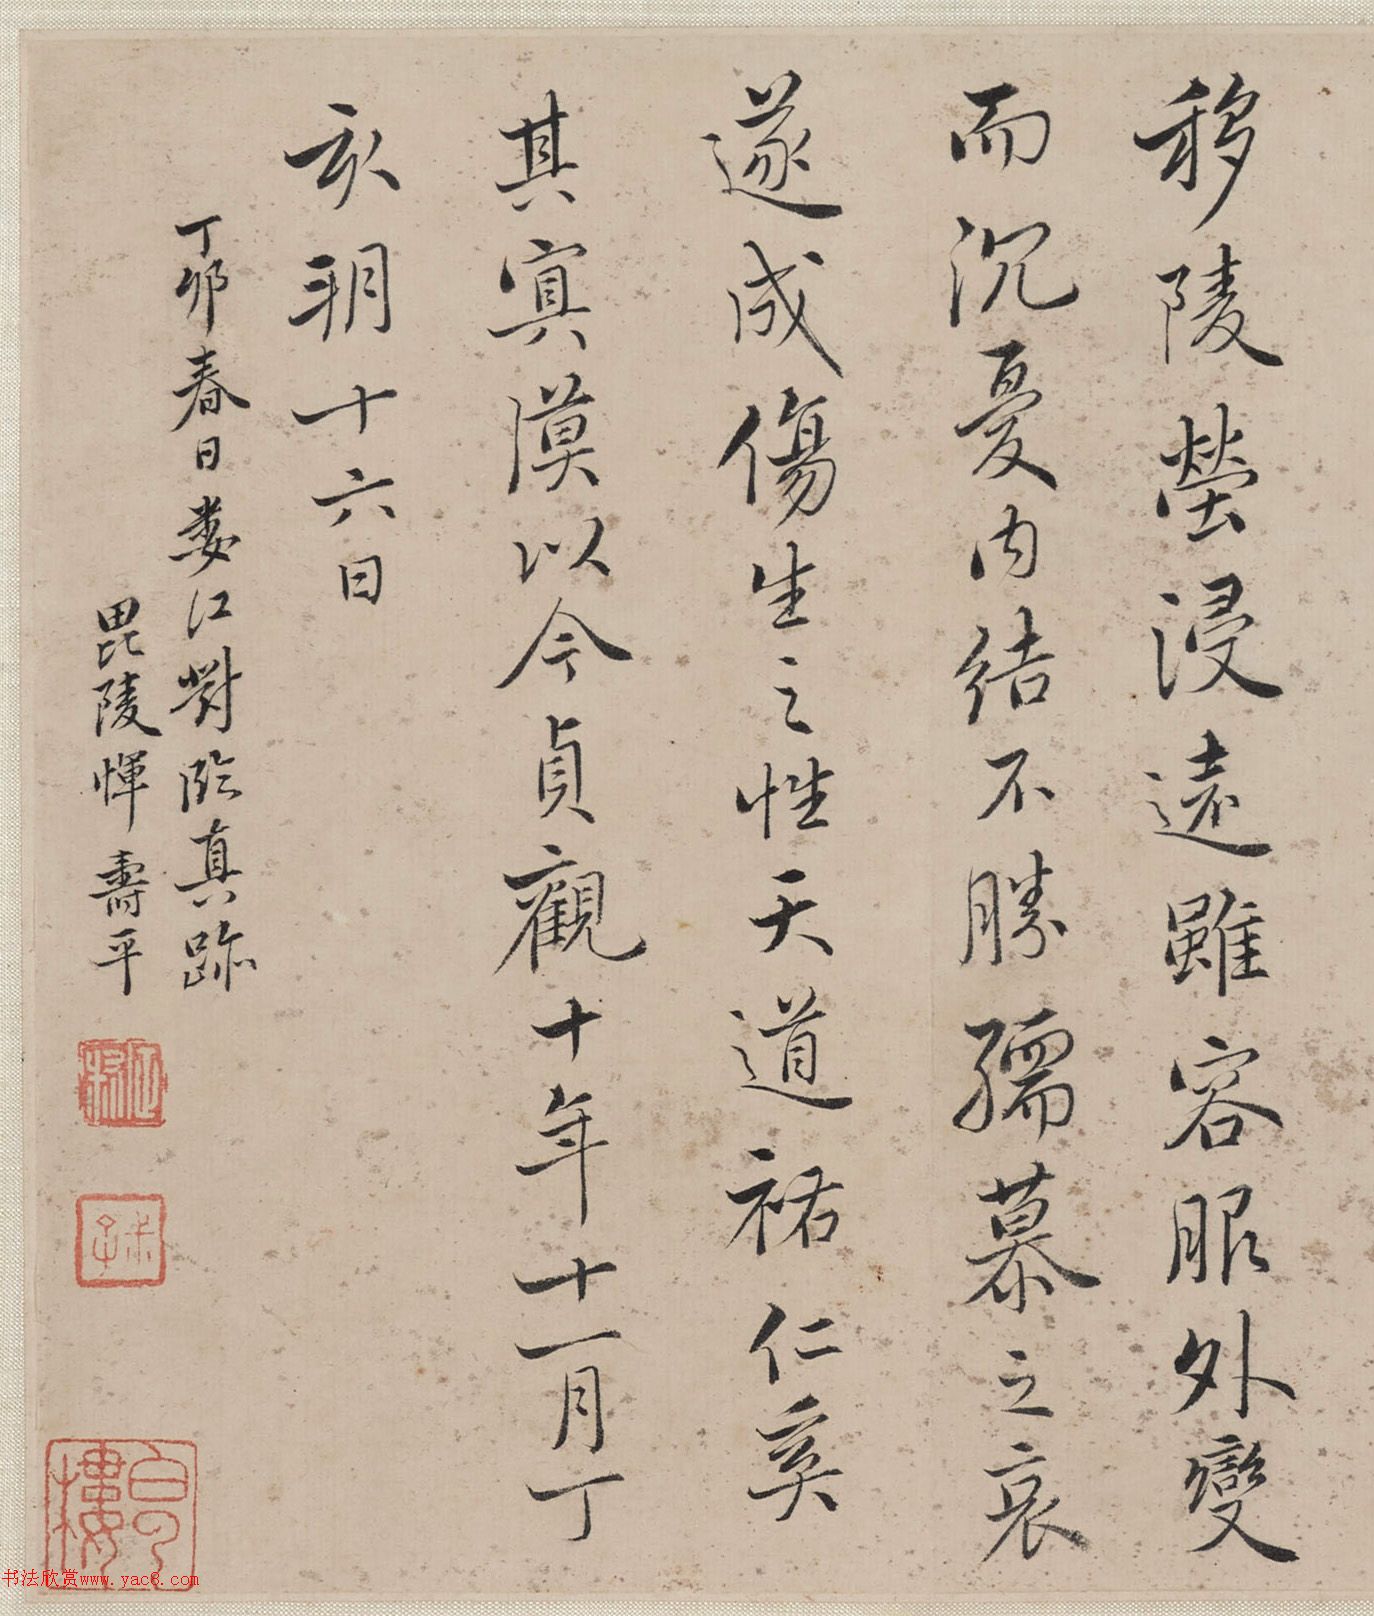 移陵塋浸遠雖容服外變
而沉憂內結不勝孺慕之哀
遂成傷生之性天道祐仁奚
其寘漠以今貞觀十年十一月丁
亥朔十六日
丁卯春日婁江對臨真跡
毘陵惲壽平
白雲樓
书法欣赏www.yac8.com